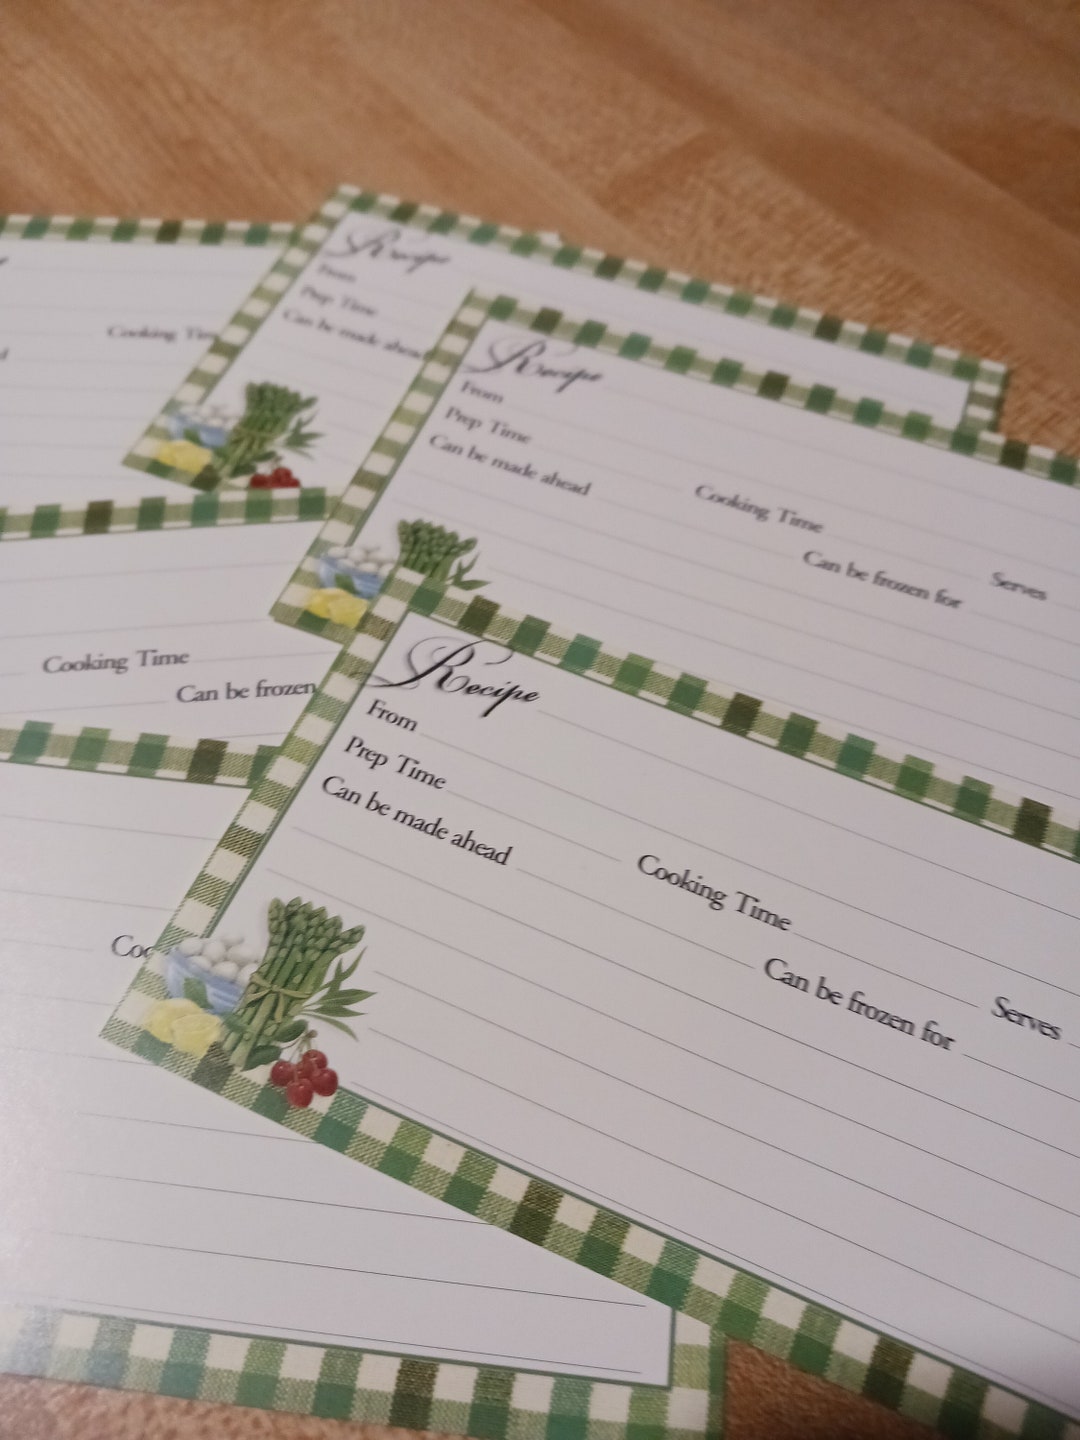 Recipe
From
Prep Time
Can be made ahead
Cooking Time
Recipe
From
Prep Time
Can be made ahead
Cooking Time
Serves
Can be frozen for
Cooking Time
Can be frozen
Recipe
From
Prep Time
Can be made ahead
Cooking Time
Serves
Can be frozen for